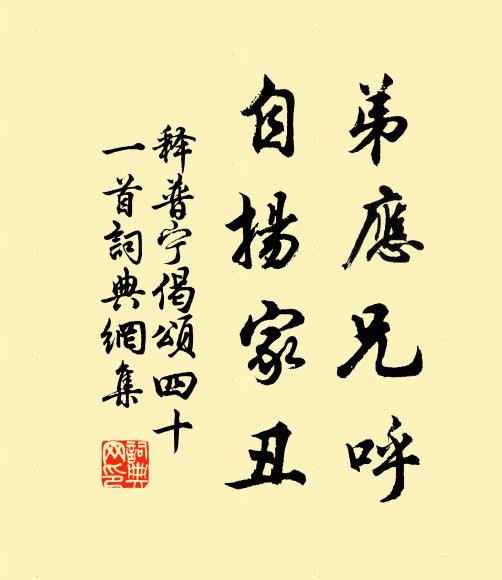 弟應兄呼
自揚家丑
释普宁偈頌四十
一首詞典網集
詞典
网印